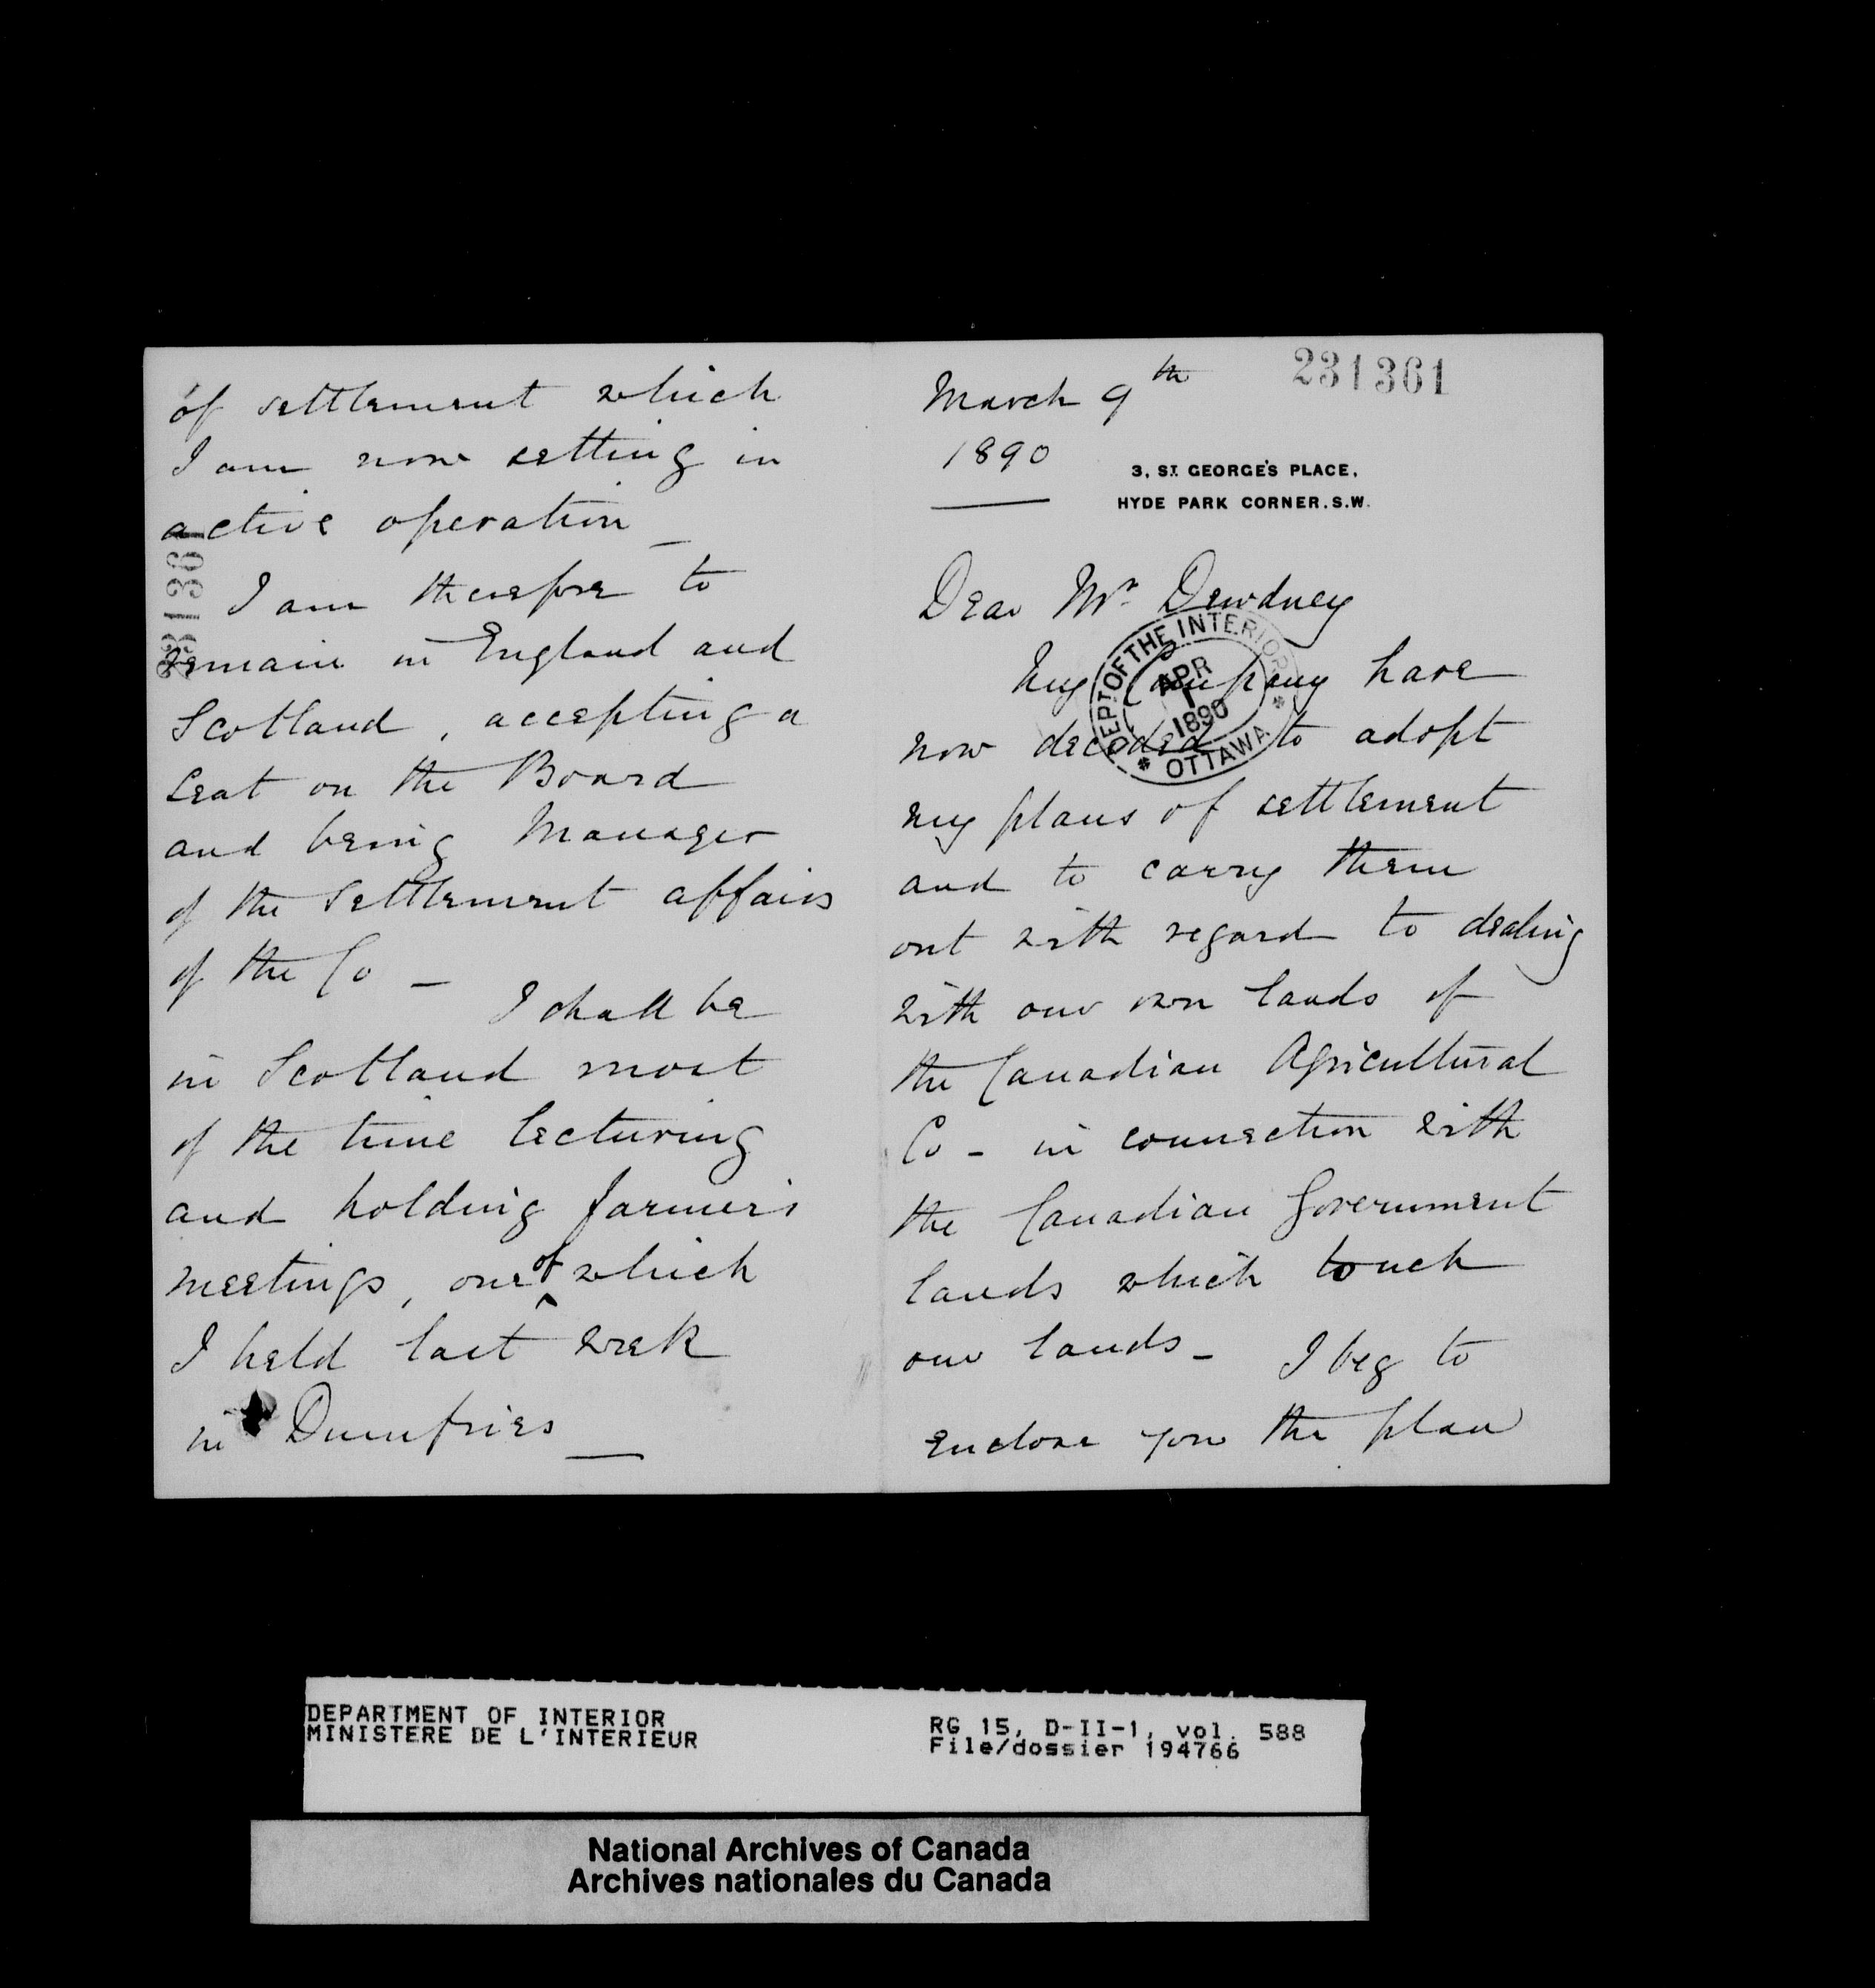 231361
March 9th
1890
3, ST. GEORGE'S PLACE,
HYDE PARK CORNER. S.W.
Dear Mr. Dewdney
My Company have
now decided to adopt
my plans of settlement
and to carry them
out with regard to dealing
with our own lands of
the Canadian Agricultural
Co - in connection with
the Canadian Government
lands which touch
our lands - I beg to
enclose you the plan
DEPT. OF THE INTERIOR
APR
1
1890
OTTAWA
of settlement which
I am now setting in
active operation _
231361
I am therefore to
remain in England and
Scotland, accepting a
seat on the Board
and being Manager
of the Settlement affairs
of the Co -
I shall be
in Scotland most
of the time lecturing
and holding farmer's
meetings, one of which
I held last week
in Dumfries _
DEPARTMENT OF INTERIOR
MINISTERE DE L'INTERIEUR
RG 15, D-II-1, vol. 588
File/dossier 194766
National Archives of Canada
Archives nationales du Canada